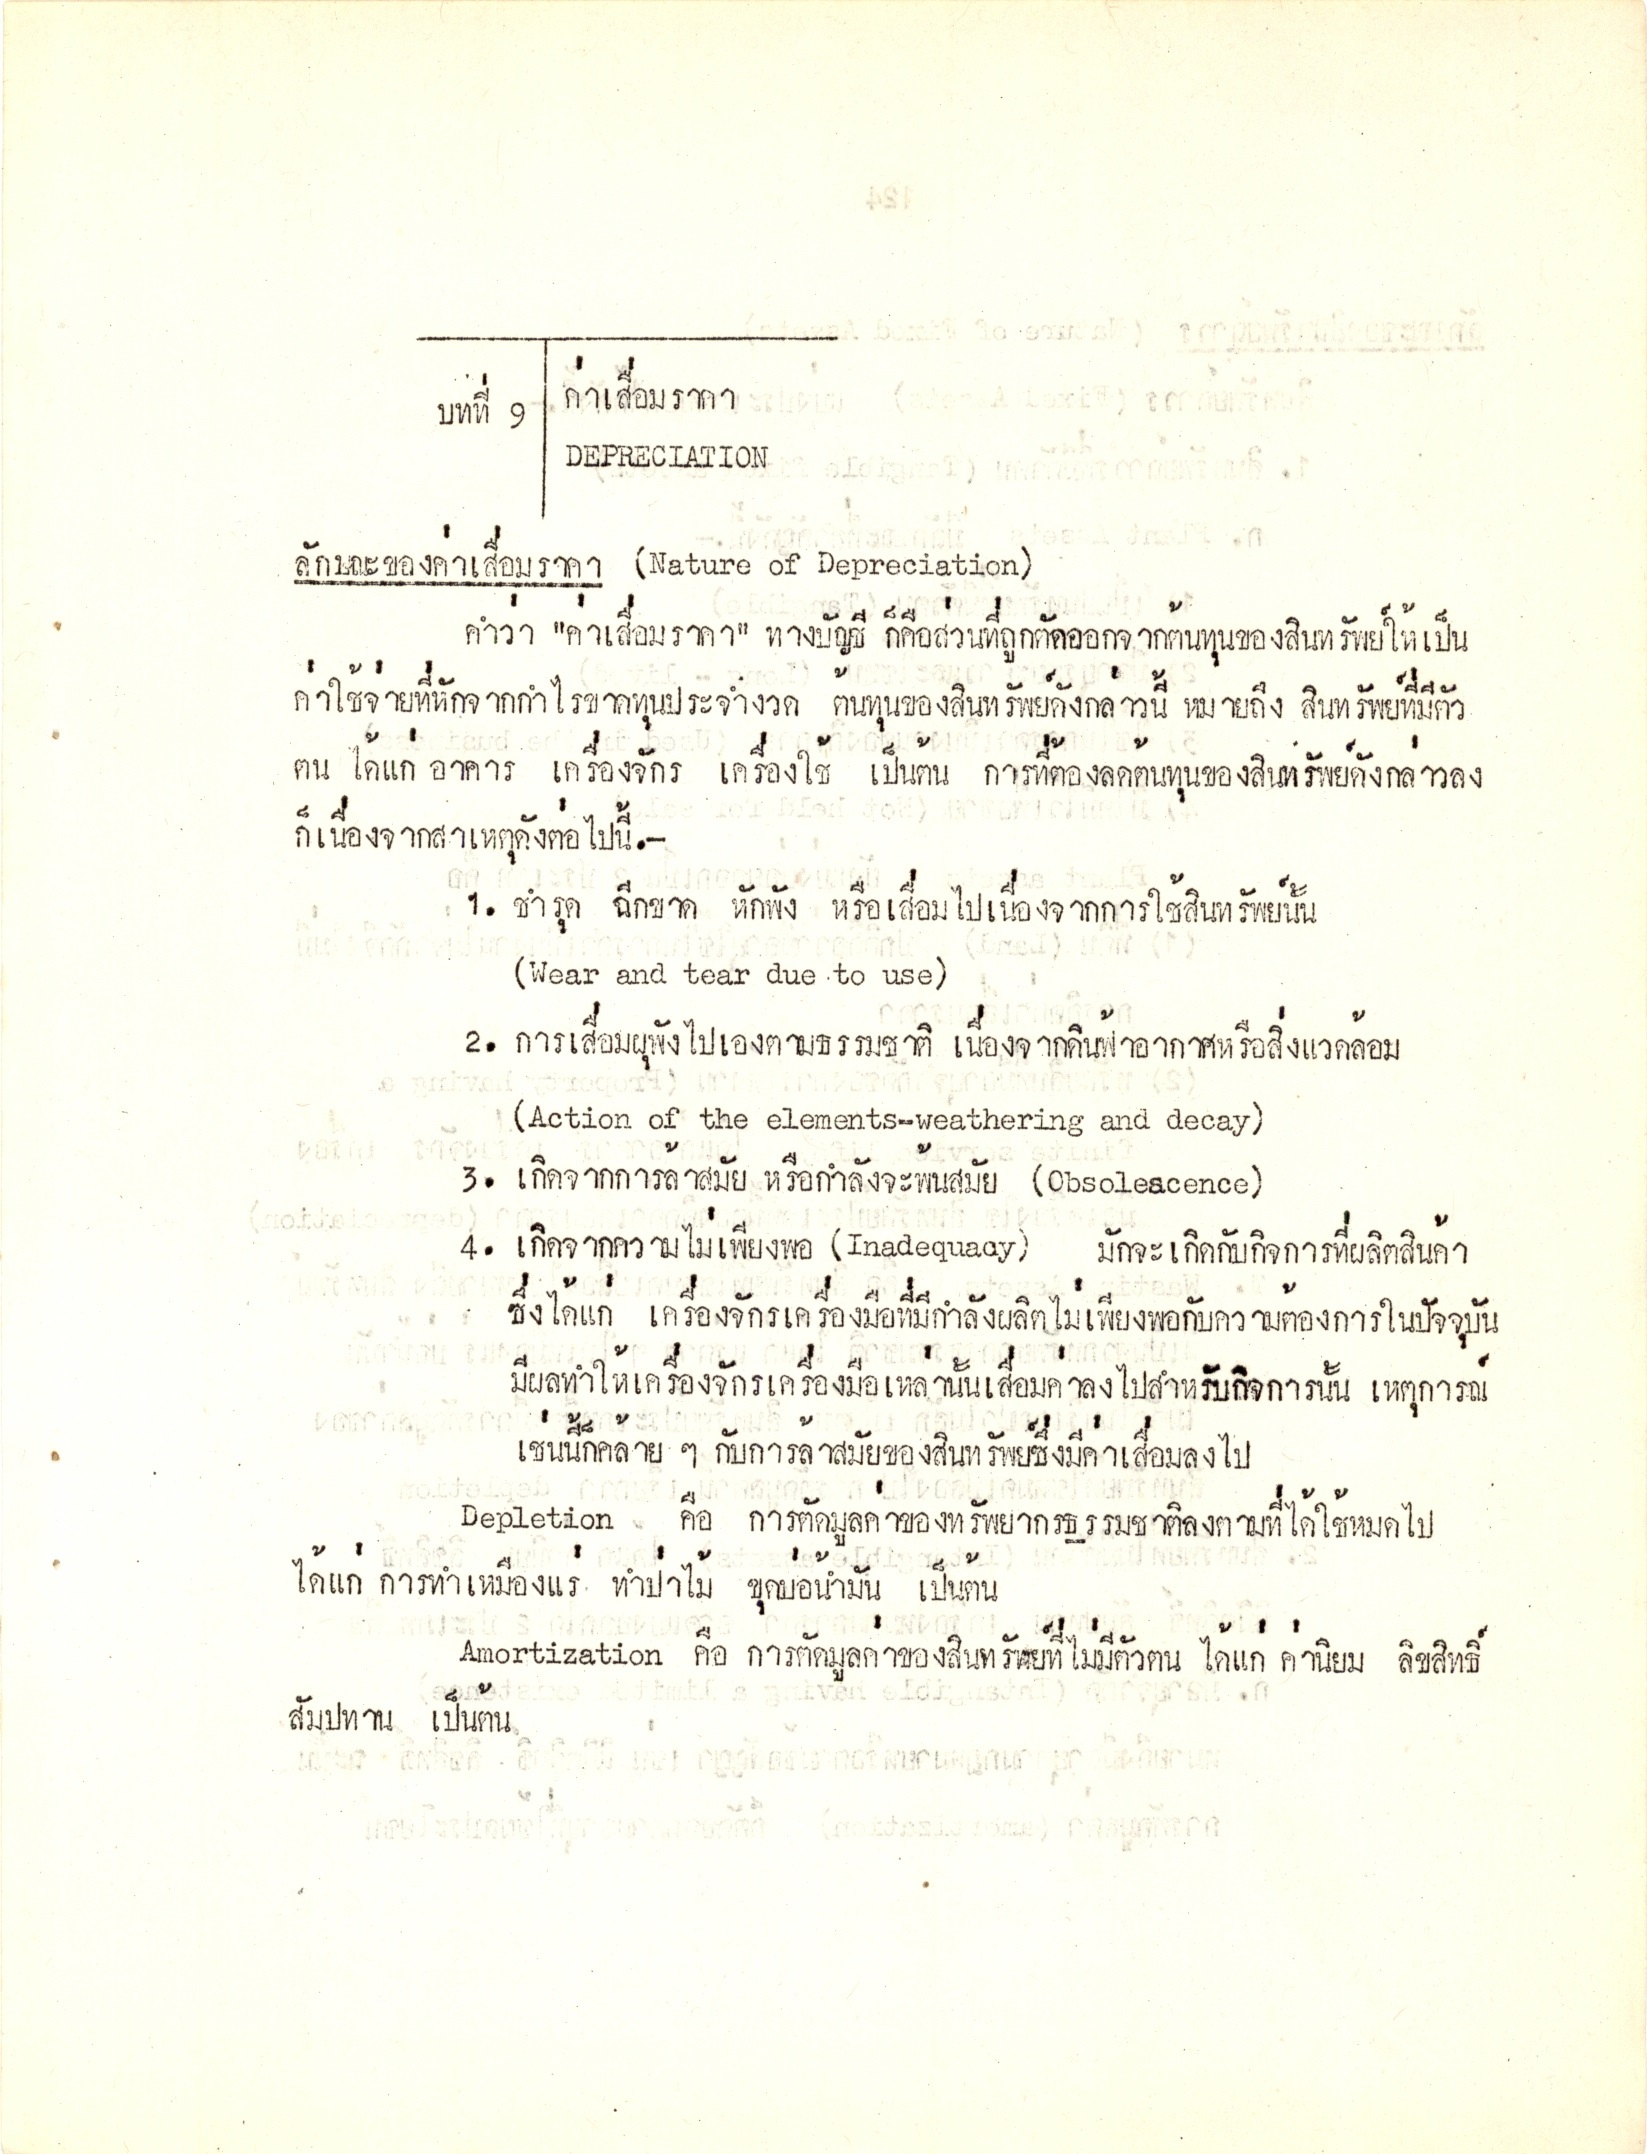 บทที่ 9
ค่าเสื่อมราคา
DEPRECIATION
ลักษณะของค่าเสื่อมราคา (Nature of Depreciation)
คำว่า "ค่าเสื่อมราคา" ทางบัญชี ก็คือส่วนที่ถูกตัดออกจากต้นทุนของสินทรัพย์ให้เป็น
ค่าใช้จ่ายที่หักจากกำไรขาดทุนประจำงวด ต้นทุนของสินทรัพย์ดังกล่าวนี้ หมายถึง สินทรัพย์ที่มีตัว
ตน ได้แก่ อาคาร เครื่องจักร เครื่องใช้ เป็นต้น การที่ต้องลดต้นทุนของสินทรัพย์ดังกล่าวลง
ก็เนื่องจากสาเหตุดังต่อไปนี้.-
1. ชำรุด ฉีกขาด หักพัง หรือเสื่อมไปเนื่องจากการใช้สินทรัพย์นั้น
(Wear and tear due to use)
2. การเสื่อมผุพังไปเองตามธรรมชาติ เนื่องจากดินฟ้าอากาศหรือสิ่งแวดล้อม
(Action of the elements-weathering and decay)
3. เกิดจากการล้าสมัย หรือกำลังจะพ้นสมัย (Obsoleacence)
4. เกิดจากความไม่เพียงพอ (Inadequacy) มักจะเกิดกับกิจการที่ผลิตสินค้า
ซึ่งได้แก่ เครื่องจักรเครื่องมือที่มีกำลังผลิตไม่เพียงพอกับความต้องการในปัจจุบัน
มีผลทำให้เครื่องจักรเครื่องมือเหล่านั้นเสื่อมค่าลงไปสำหรับกิจการนั้น เหตุการณ์
เช่นนี้ก็คล้าย ๆ กับการล้าสมัยของสินทรัพย์ซึ่งมีค่าเสื่อมลงไป
Depletion คือ การตัดมูลค่าของทรัพยากรธรรมชาติลงตามที่ได้ใช้หมดไป
ได้แก่ การทำเหมืองแร่ ทำป่าไม้ ขุดบ่อน้ำมัน เป็นต้น
Amortization คือ การตัดมูลค่าของสินทรัพย์ที่ไม่มีตัวตน ได้แก่ ค่านิยม ลิขสิทธิ์
สัมปทาน เป็นต้น